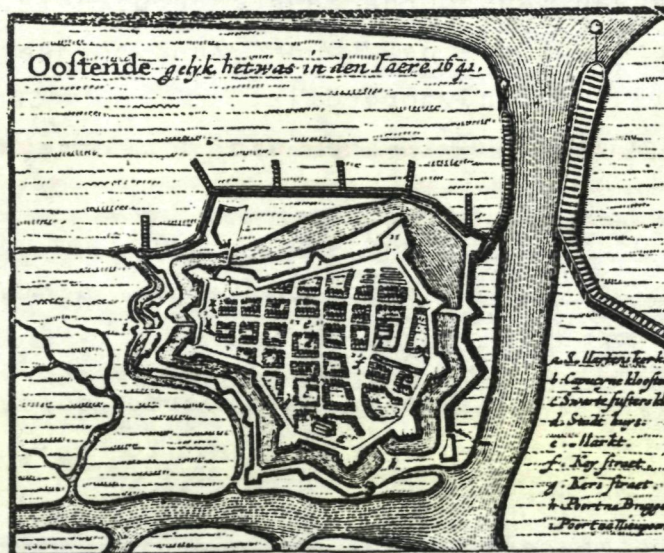 Oostende gelyk het was in den Iaere 1641.
a. S. kerk
b. Capucyne klooste
c. Swarte susters kl
d. Stadt huys.
e. Markt.
f. Key straet.
g. Kers straet.
h. Poort na Brugge
i. Poort na Nieupoor